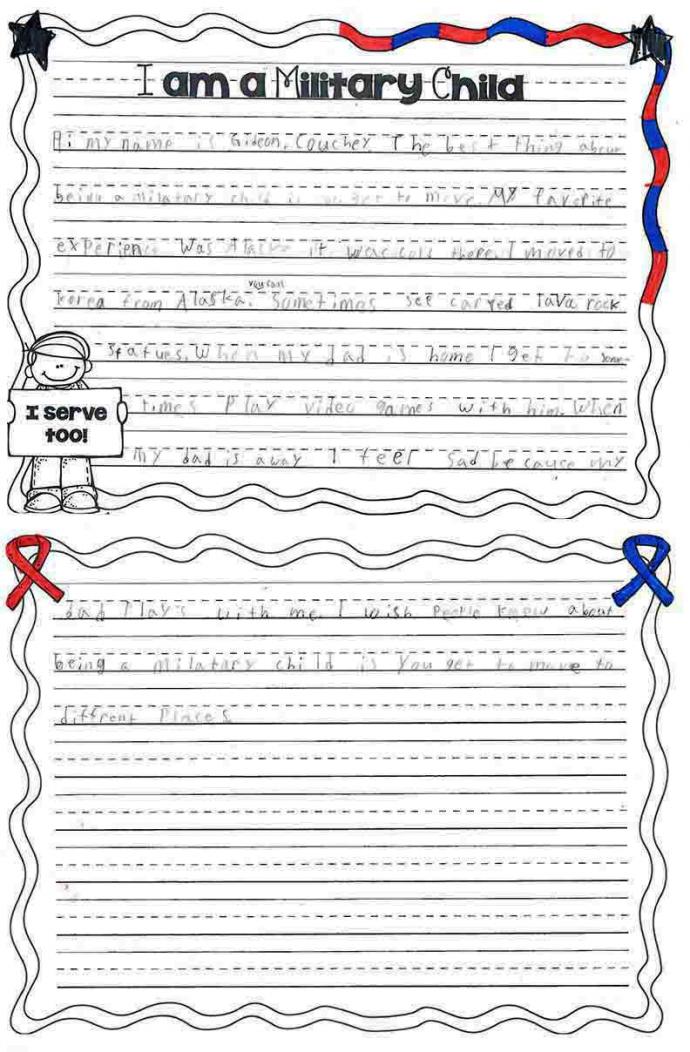 I am a Military Child
Hi my name is Gideon, Couchey. The best thing about
being a milatary child is you get to move. My favorite
experience Was Alaska it was cold there. I moved to
you can
Korea from Alaska. Sometimes see carved lava rock
statues. When my dad is home I get to some-
I serve
too!
times Play video games with him. When
my dad is away I feel sad because my
dad Play's with me. I wish People knew about
being a milatary child is You get to move to
diffrent Places